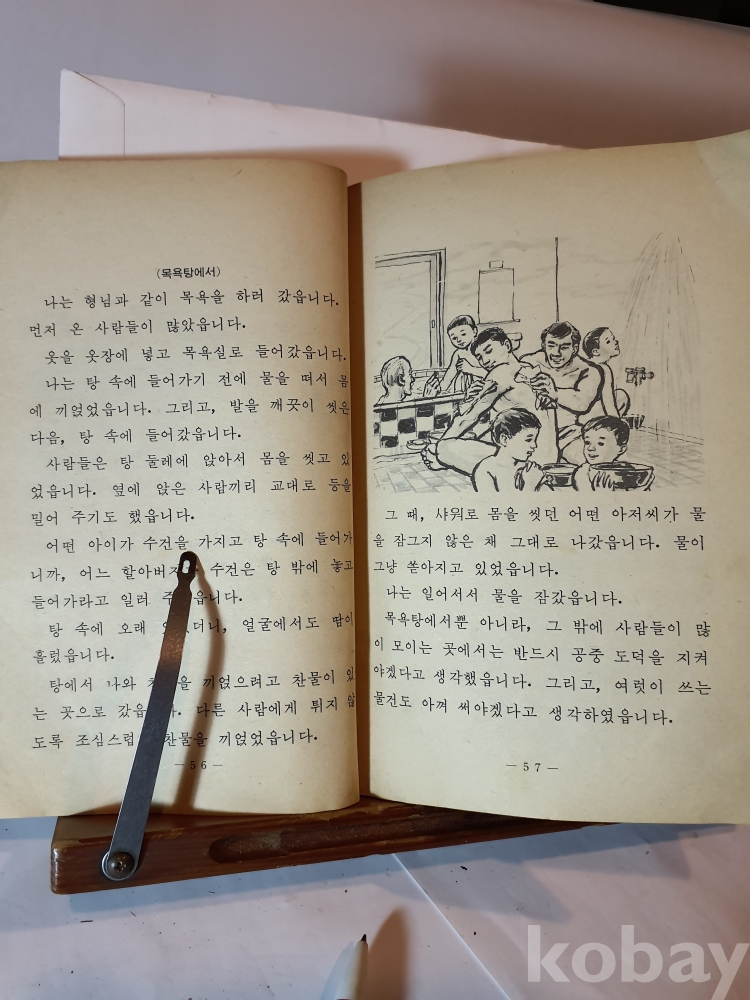 (목욕탕에서)
나는 형님과 같이 목욕을 하러 갔읍니다.
먼저 온 사람들이 많았읍니다.
옷을 옷장에 넣고 목욕실로 들어갔읍니다.
나는 탕 속에 들어가기 전에 물을 떠서 몸
에 끼얹었읍니다. 그리고, 발을 깨끗이 씻은
다음, 탕 속에 들어갔읍니다.
사람들은 탕 둘레에 앉아서 몸을 씻고 있
었읍니다. 옆에 앉은 사람끼리 교대로 등을
밀어 주기도 했읍니다.
어떤 아이가 수건을 가지고 탕 속에 들어가
니까, 어느 수건은 탕 밖에 놓고
들어가라고 일러
탕 속에 오래 얼굴에서도 땀이
흘렀읍니다.
탕에서 나와 끼얹으려고 찬물이 있
는 곳으로 다른 사람에게 튀지 않
도록 조심스럽 찬물을 끼얹었읍니다.
— 56 —
그 때, 샤워로 몸을 씻던 어떤 아저씨가 물
을 잠그지 않은 채 그대로 나갔읍니다. 물이
그냥 쏟아지고 있었읍니다.
나는 일어서서 물을 잠갔읍니다.
목욕탕에서뿐 아니라, 그 밖에 사람들이 많
이 모이는 곳에서는 반드시 공중 도덕을 지켜
야겠다고 생각했읍니다. 그리고, 여럿이 쓰는
물건도 아껴 써야겠다고 생각하였읍니다.
— 57 —
kobay